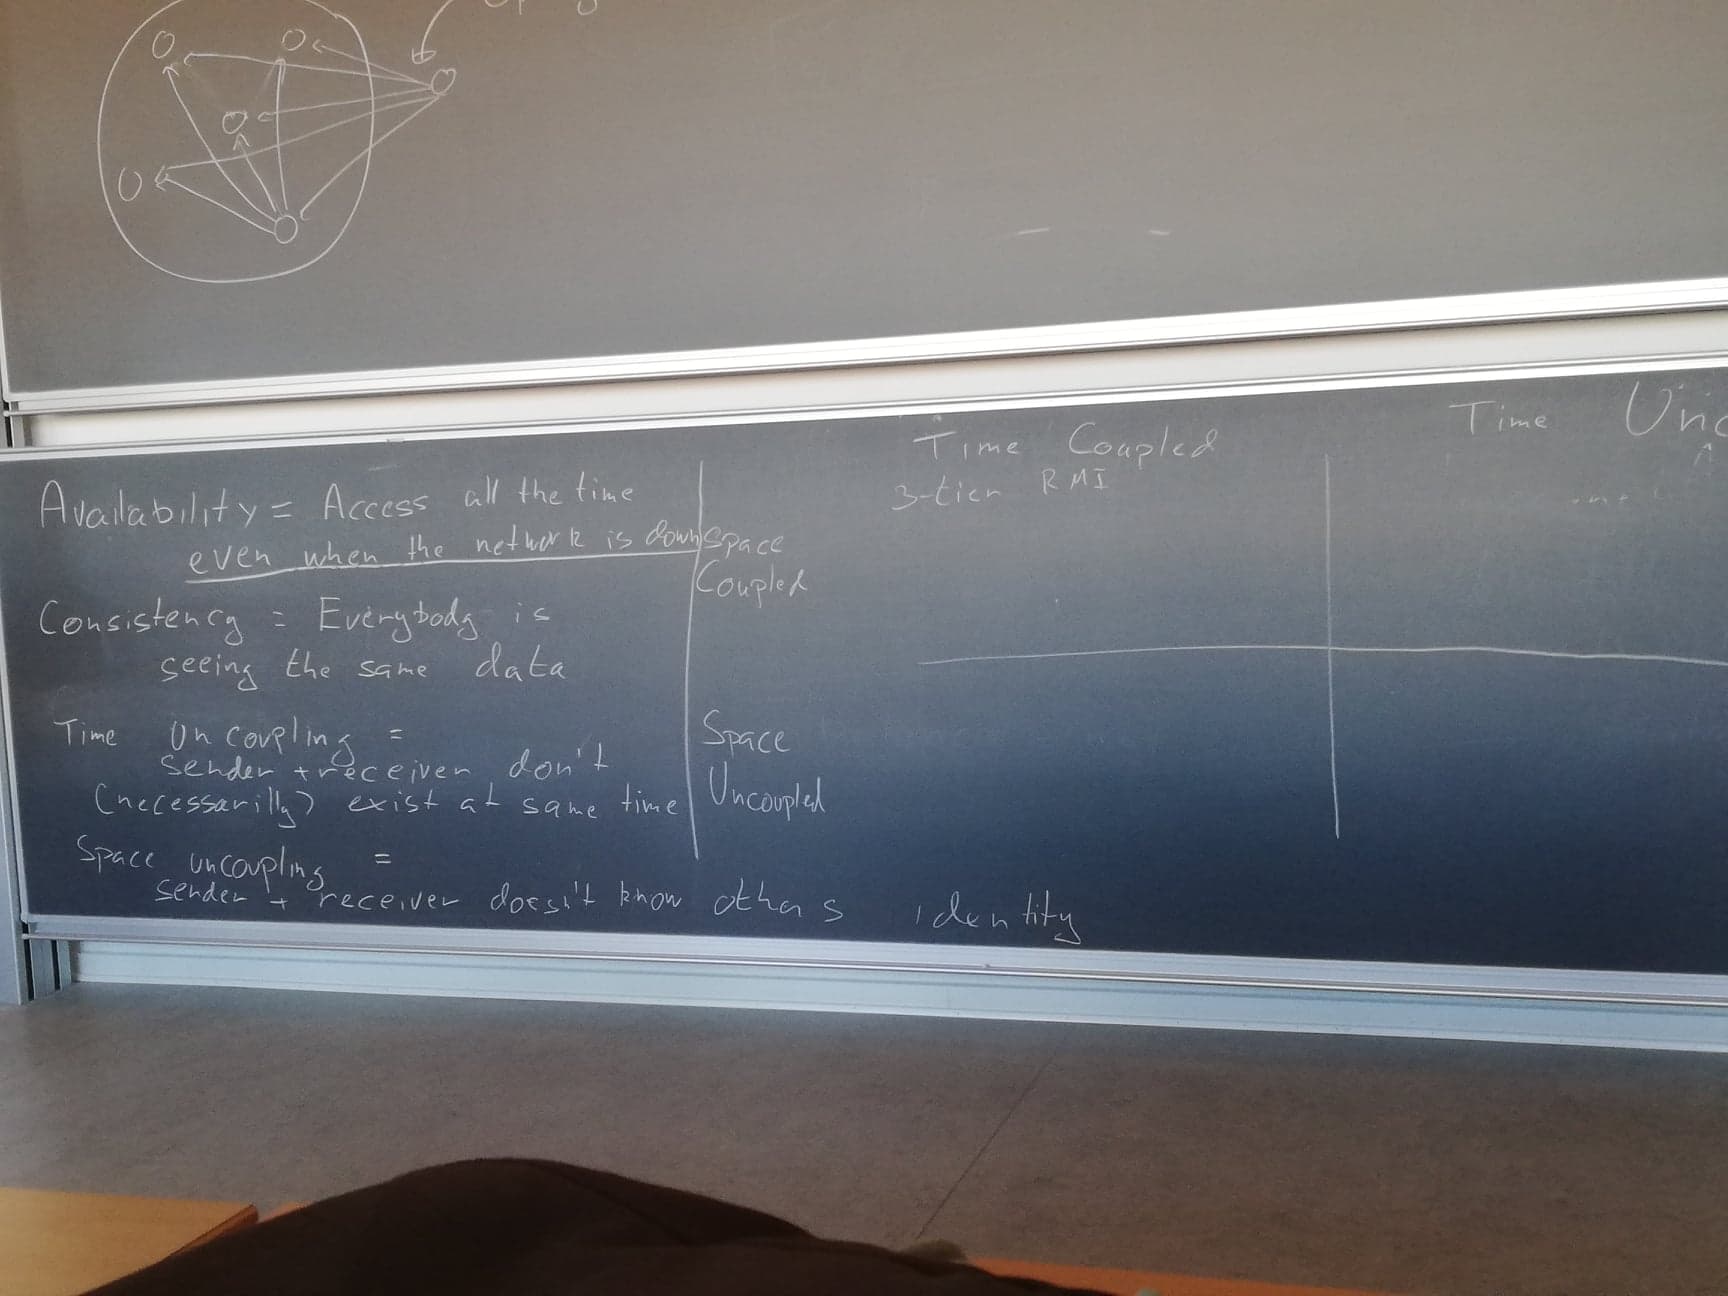 Availability = Access all the time
even when the network is down
Consistency = Everybody is
seeing the same data
Time Uncoupling =
sender + receiver don't
(necessarilly) exist at same time
Space uncoupling =
sender + receiver doesn't know others identity
Time Coupled
3-tier RMI
Time
Space
Coupled
Space
Uncoupled